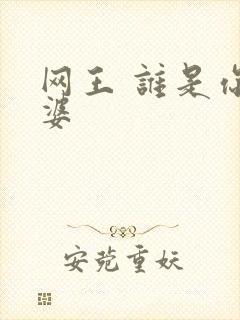 网王 誰是你
婆
安菀重妖